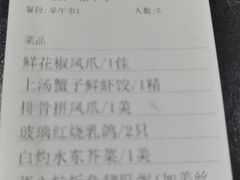 餐段:早午市1 人数:5
菜品
鲜花椒凤爪/1佳
上汤蟹子鲜虾饺/1精
排骨拼凤爪/1美
玻璃红烧乳鸽/2只
白灼水东芥菜/1美